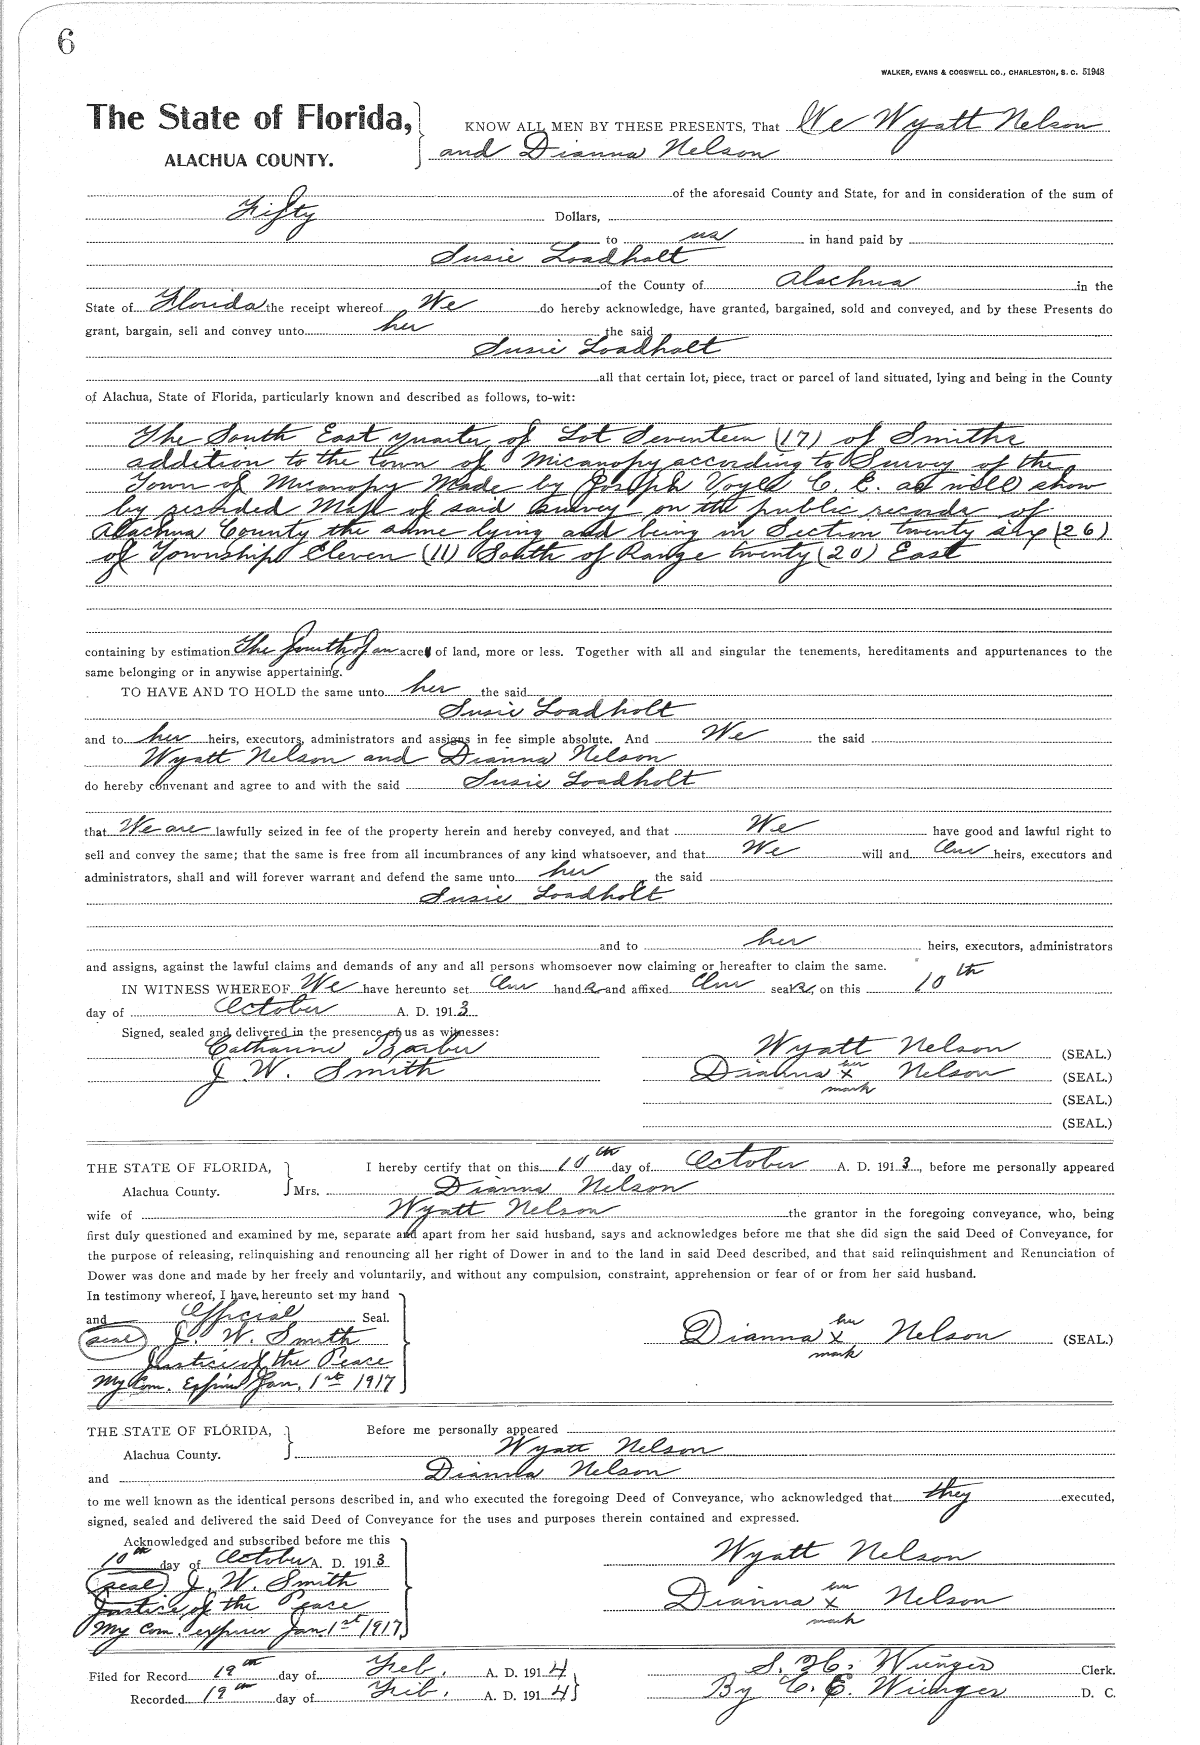 6
WALKER, EVANS & COGSWELL CO., CHARLESTON, S. C. 51948
The State of Florida,
ALACHUA COUNTY.
KNOW ALL MEN BY THESE PRESENTS, That We Wyatt Nelson
and Dianna Nelson
of the aforesaid County and State, for and in consideration of the sum of
Fifty Dollars,
to us in hand paid by
Susie Loadholt
of the County of Alachua in the
State of Florida the receipt whereof We do hereby acknowledge, have granted, bargained, sold and conveyed, and by these Presents do
grant, bargain, sell and convey unto her the said
Susie Loadholt
all that certain lot, piece, tract or parcel of land situated, lying and being in the County
of Alachua, State of Florida, particularly known and described as follows, to-wit:
The South East quarter of Lot Seventeen (17) of Smiths
addition to the town of Micanopy according to Survey of the
Town of Micanopy Made by Joseph Voyle C. E. as will show
by recorded Map of said Survey on the public records of
Alachua County the same lying and being in Section twenty six (26)
of Township Eleven (11) South of Range twenty (20) East
containing by estimation The fourth of an acre of land, more or less. Together with all and singular the tenements, hereditaments and appurtenances to the
same belonging or in anywise appertaining.
TO HAVE AND TO HOLD the same unto her the said
Susie Loadholt
and to her heirs, executors, administrators and assigns in fee simple absolute. And We the said
Wyatt Nelson and Dianna Nelson
do hereby convenant and agree to and with the said Susie Loadholt
that We are lawfully seized in fee of the property herein and hereby conveyed, and that We have good and lawful right to
sell and convey the same; that the same is free from all incumbrances of any kind whatsoever, and that We will and Our heirs, executors and
administrators, shall and will forever warrant and defend the same unto her the said
Susie Loadholt
and to her heirs, executors, administrators
and assigns, against the lawful claims and demands of any and all persons whomsoever now claiming or hereafter to claim the same.
IN WITNESS WHEREOF, We have hereunto set Our hands and affixed Our seals, on this 10th
day of October A. D. 1913
Signed, sealed and delivered in the presence of us as witnesses:
Catharine Barber
J. W. Smith
Wyatt Nelson (SEAL.)
Dianna her x mark Nelson (SEAL.)
(SEAL.)
(SEAL.)
THE STATE OF FLORIDA,
Alachua County.
I hereby certify that on this 10th day of October A. D. 1913, before me personally appeared
Mrs. Dianna Nelson
wife of Wyatt Nelson the grantor in the foregoing conveyance, who, being
first duly questioned and examined by me, separate and apart from her said husband, says and acknowledges before me that she did sign the said Deed of Conveyance, for
the purpose of releasing, relinquishing and renouncing all her right of Dower in and to the land in said Deed described, and that said relinquishment and Renunciation of
Dower was done and made by her freely and voluntarily, and without any compulsion, constraint, apprehension or fear of or from her said husband.
In testimony whereof, I have hereunto set my hand
and Official Seal.
(seal) J. W. Smith
Justice of the Peace
My Com. Expires Jan. 1st 1917
Dianna her x mark Nelson (SEAL.)
THE STATE OF FLORIDA,
Alachua County.
Before me personally appeared
Wyatt Nelson
and Dianna Nelson
to me well known as the identical persons described in, and who executed the foregoing Deed of Conveyance, who acknowledged that they executed,
signed, sealed and delivered the said Deed of Conveyance for the uses and purposes therein contained and expressed.
Acknowledged and subscribed before me this
10th day of October A. D. 1913
(seal) J. W. Smith
Justice of the Peace
My Com. expires Jan. 1st 1917
Wyatt Nelson
Dianna her x mark Nelson
Filed for Record 19th day of Feb. A. D. 1914
Recorded 19th day of Feb. A. D. 1914
S. H. Wienges Clerk.
By C. E. Wienges D. C.